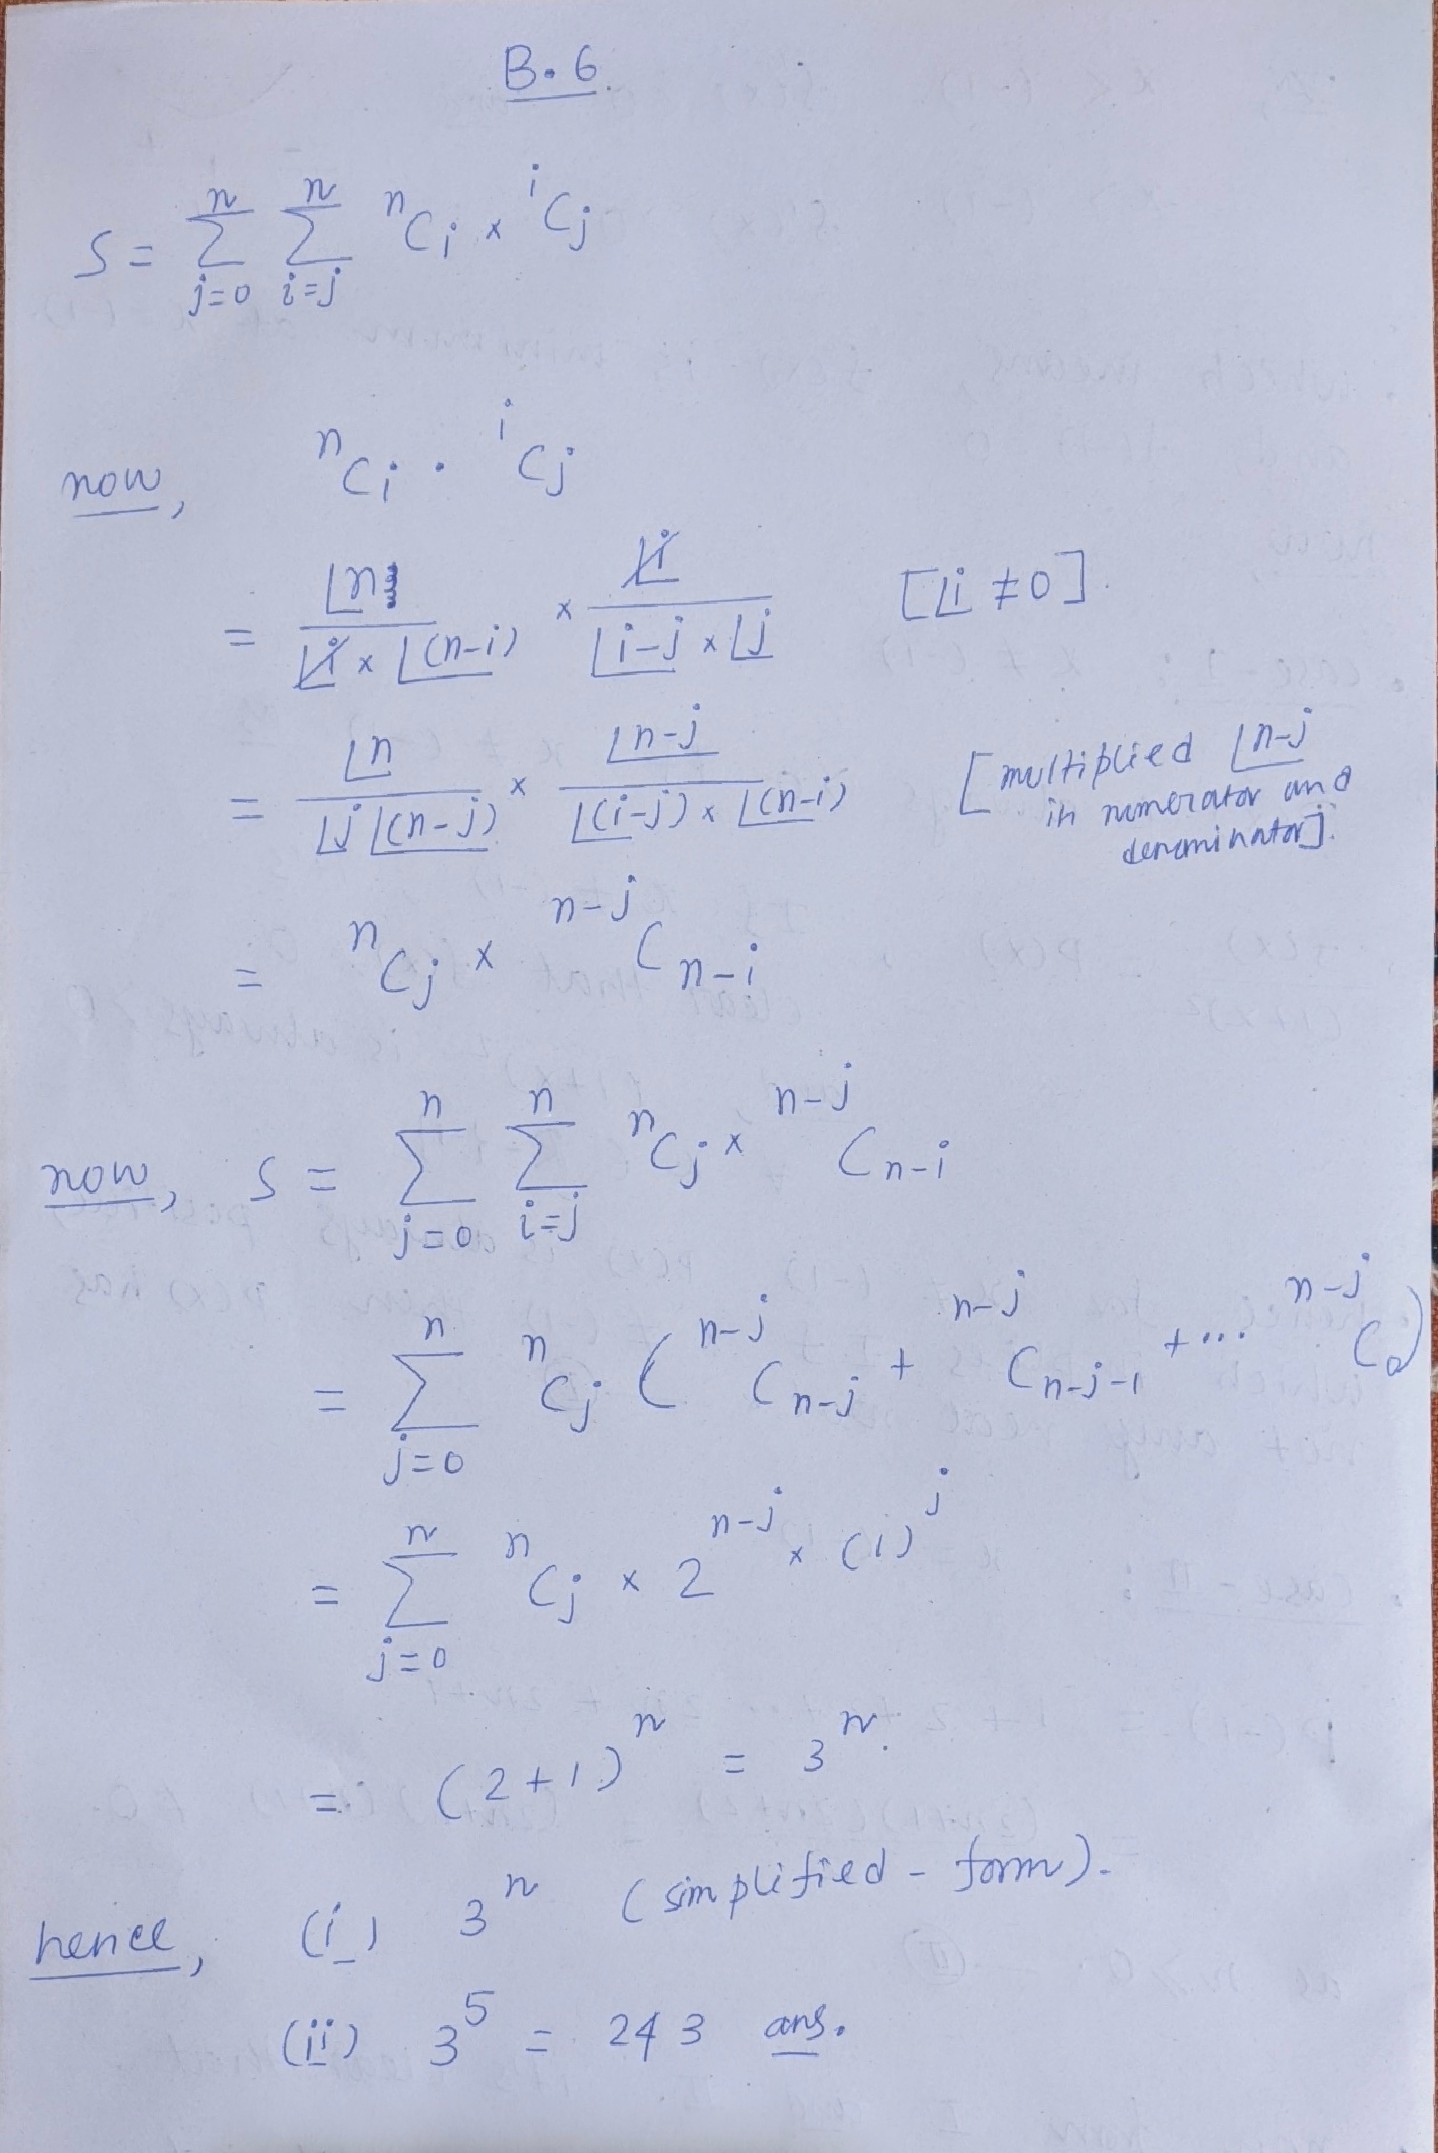 B.6.
S = \sum_{j=0}^{n} \sum_{i=j}^{n} {}^{n}C_{i} × {}^{i}C_{j}
now, {}^{n}C_{i} · {}^{i}C_{j}
= \frac{⌊n}{⌊i × ⌊(n-i)} × \frac{⌊i}{⌊i-j × ⌊j} [⌊i ≠ 0].
= \frac{⌊n}{⌊j ⌊(n-j)} × \frac{⌊n-j}{⌊(i-j) × ⌊(n-i)} [multiplied ⌊n-j
in numerator and
denominator].
= {}^{n}C_{j} × {}^{n-j}C_{n-i}
now, S = \sum_{j=0}^{n} \sum_{i=j}^{n} {}^{n}C_{j} × {}^{n-j}C_{n-i}
= \sum_{j=0}^{n} {}^{n}C_{j} ( {}^{n-j}C_{n-j} + {}^{n-j}C_{n-j-1} + ... {}^{n-j}C_{0} )
= \sum_{j=0}^{n} {}^{n}C_{j} × 2^{n-j} × (1)^{j}
= (2+1)^{n} = 3^{n}.
hence, (i) 3^{n} (simplified-form).
(ii) 3^{5} = 243 ans.